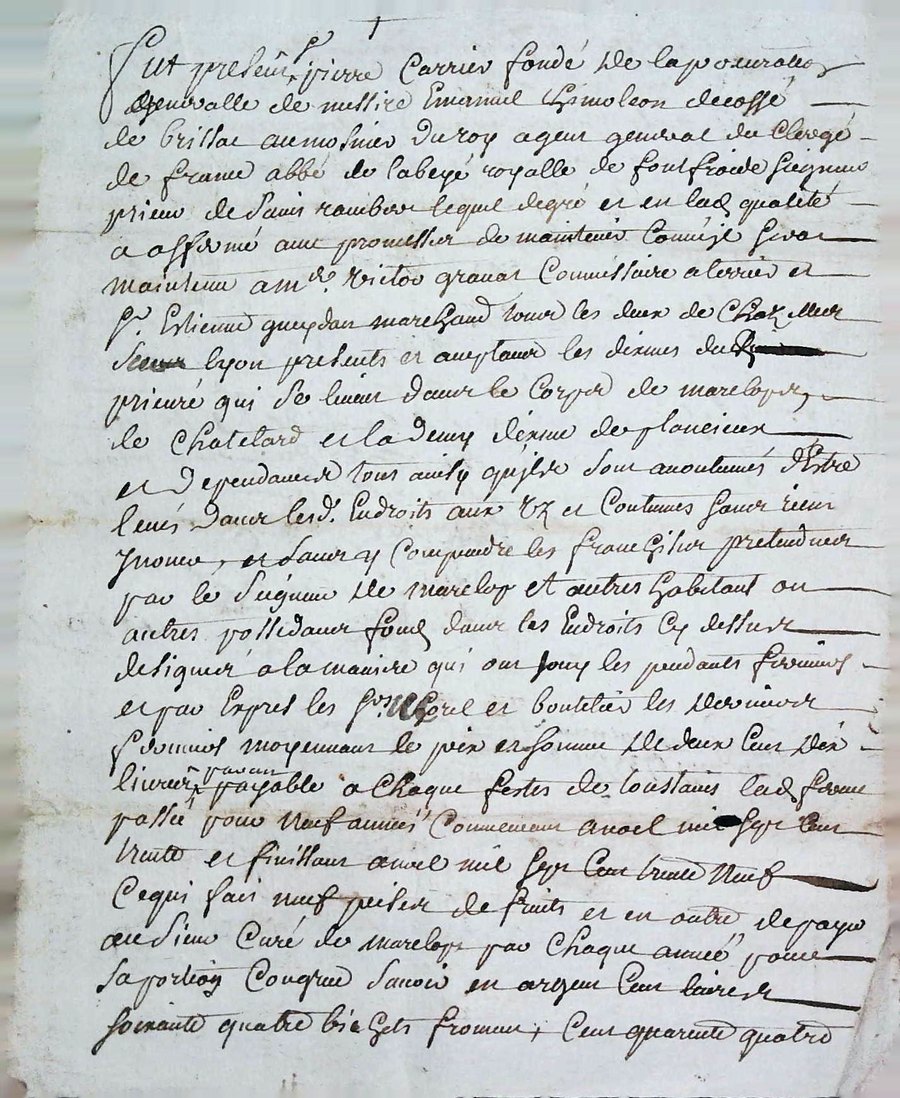 fut present Sr pierre Carrier fondé de la procuration
generalle de messire Emanuel thimoleon de cossé
de brissac aumosnier du roy agent general du Clergé
de france abbé de labeyé royalle de fontfroide seigneur
prieur de saint rambert lequel de gré et en lad qualité
a affermé avec promesse de maintenir comme il sera
maintenu a mr. victor granat Commissaire a terrier et
Sr. Estienne gueydan marchand tous les deux de
lyon presents et acceptans les dixmes du
prieuré qui se levent dans le Corps de marclopt,
le Chatelard et la demy dixme de plancieux
et dependances tous ainsy qu'ils sont accoutumés d'Estre
levés dans lesd. Endroits aux uz et Coutumes sans rien
ynover, et sans y Comprendre les franchises pretendues
par le seigneur de marclop et autres habitant ou
autres possedans fonds dans les Endroits Cy dessus
designés a la maniere qui ont jouy les precedants fermiers
et par Expres les Srs. et boutelier les derniers
fermiers moyennant le prix et somme de deux Cent dix
livres par an payable a Chaque festes de toussaints lad ferme
passée pour neuf années Commencant a noel mil sept Cent
trente et finissant a noel mil sept Cent trente neuf
Ce qui fait neuf prises de fruits et en outre de payer
au sieur Curé de marclopt par Chaque année pour
sa portion Congrue savoir en argent Cent livres
soixante quatre bichets froment, Cent quarente quatre